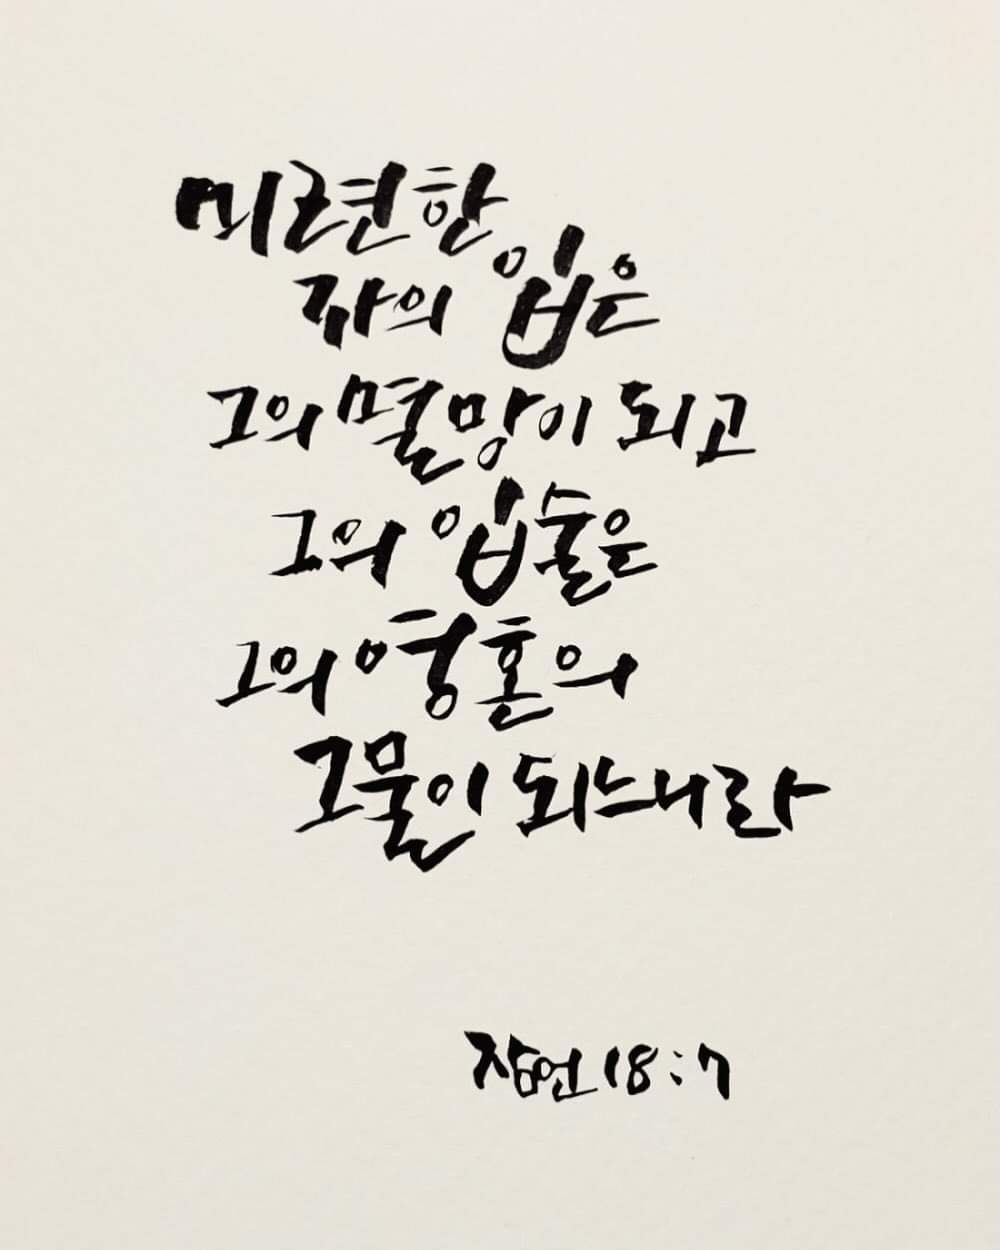 미련한
자의 입은
그의 멸망이 되고
그의 입술은
그의 영혼의
그물이 되느니라
잠언 18:7